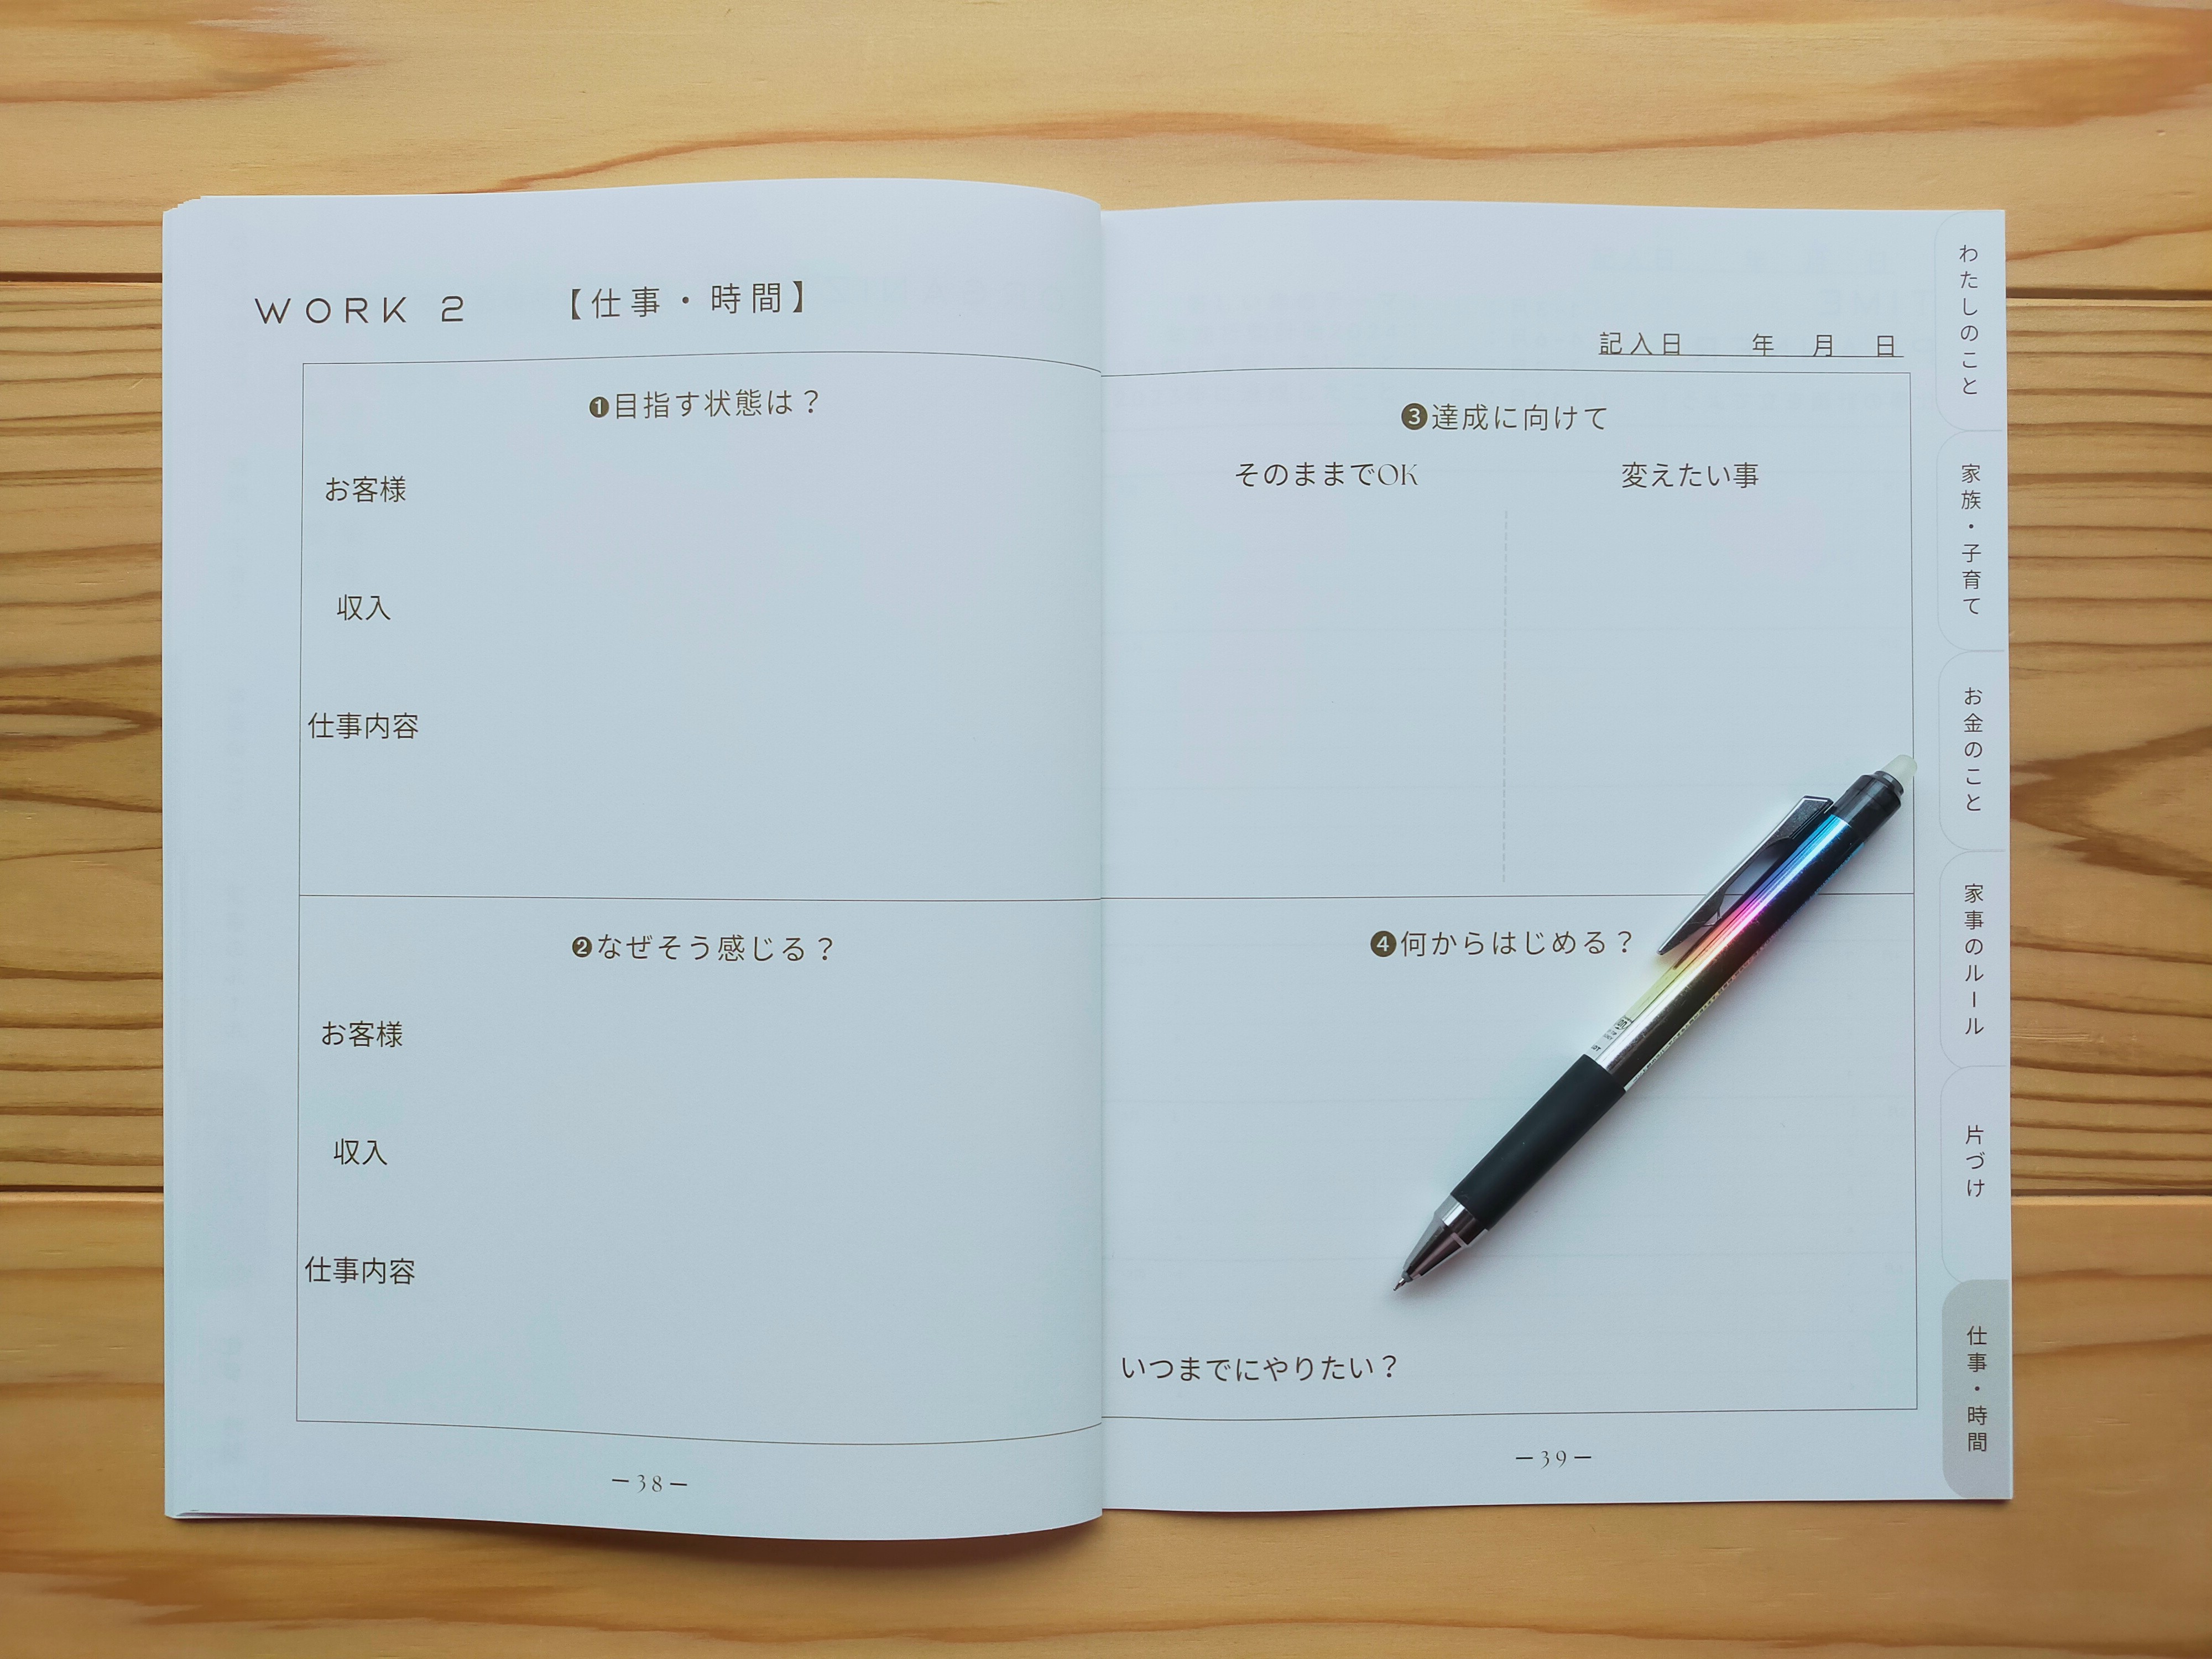 WORK 2 【仕事・時間】
❶目指す状態は？
お客様
収入
仕事内容
❷なぜそう感じる？
お客様
収入
仕事内容
ー38ー
記入日 年 月 日
❸達成に向けて
そのままでOK 変えたい事
❹何からはじめる？
いつまでにやりたい？
ー39ー
わたしのこと
家族・子育て
お金のこと
家事のルール
片づけ
仕事・時間